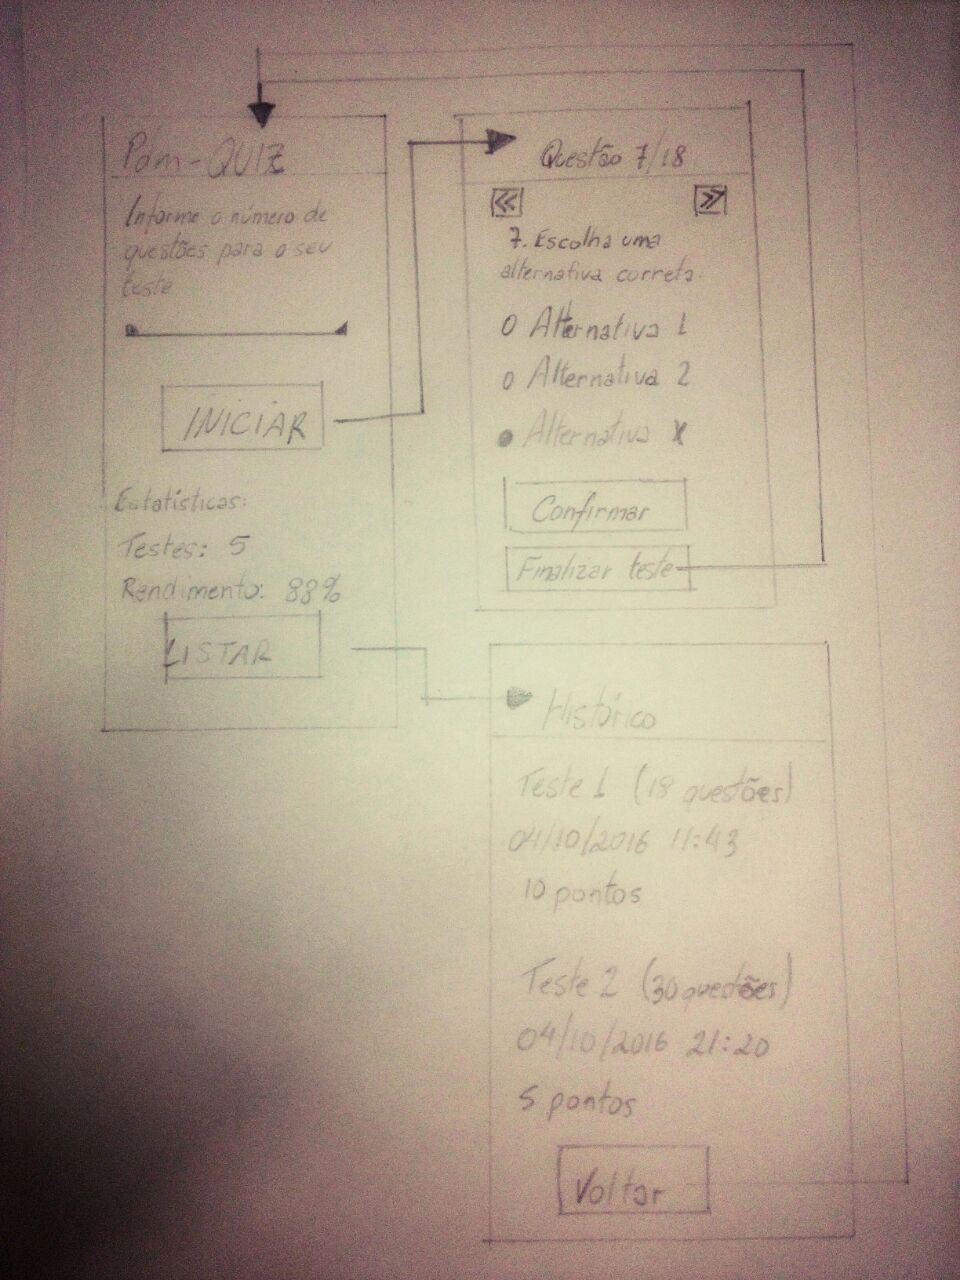 Pam-QUIZ
Informe o número de
questões para o seu
teste
INICIAR
Estatísticas:
Testes: 5
Rendimento: 88%
LISTAR
Questão 7/18
«
»
7. Escolha uma
alternativa correta.
O Alternativa 1
O Alternativa 2
● Alternativa X
Confirmar
Finalizar teste
Histórico
Teste 1 (18 questões)
04/10/2016 11:43
10 pontos
Teste 2 (30 questões)
04/10/2016 21:20
5 pontos
Voltar